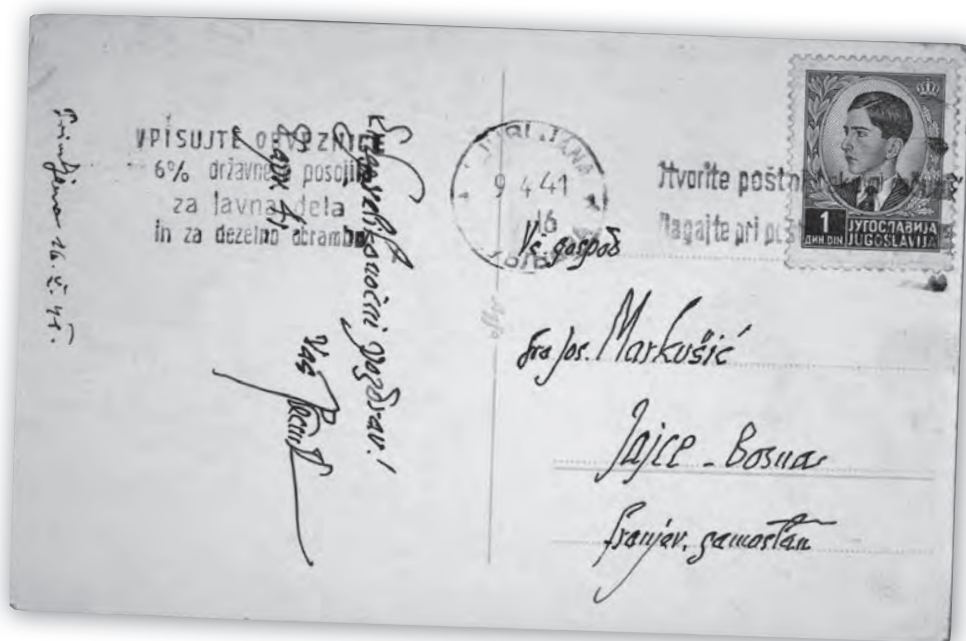 VPISUJTE OBVEZNICE
6% državnega posojila
za javna dela
in za dezelno obrambo
Velikonočni pozdrav!
Vaš
LJUBLJANA
9 4 41
16
Otvorite poštno
Vlagajte pri
1
ДИН. DIN
ЈУГОСЛАВИЈА
JUGOSLAVIJA
Vč. gospod
fra Jos. Markušić
Jajce - Bosna
franjev. samostan
Primljeno 16. V. 45.